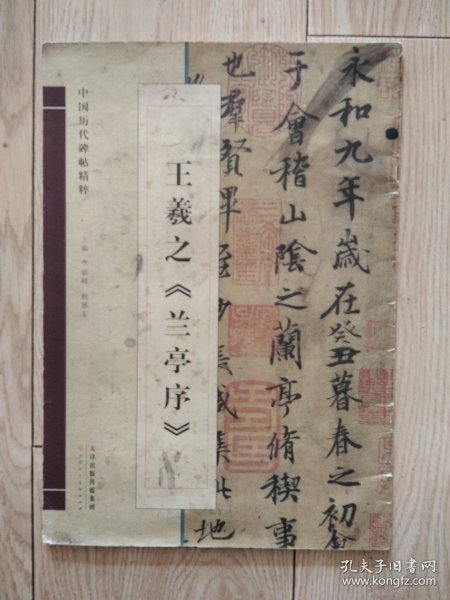 永和九年歲在癸丑暮春之初會
于會稽山陰之蘭亭脩稧事
也羣賢畢至少長咸集此地
王羲之《兰亭序》
中国历代碑帖精粹
天津出版传媒集团
孔夫子旧书网
www.kongfz.com